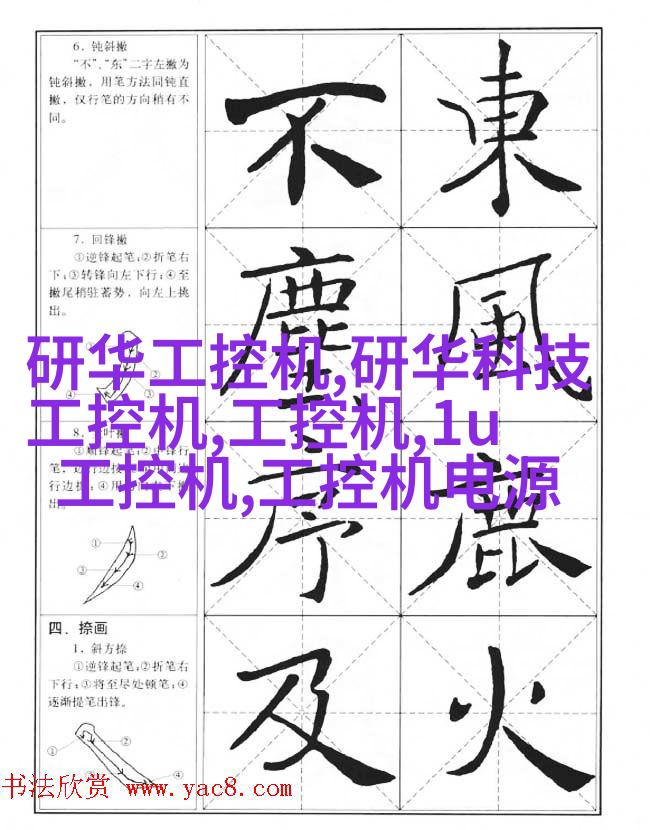 6. 钝斜撇
“不”、“东”二字左撇为
钝斜撇,用笔方法同钝直
撇,仅行笔的方向稍有不
同。
不 東
7. 回锋撇
①逆锋起笔;②折笔右
下;③转锋向左下行;④至
撇尾稍驻蓄势,向左上挑
出。
① ② ③ ④
塵 風
研华工控机,研华科技
工控机,工控机,1u
工控机,工控机电源
8.
① ② ③ ④
序 鹿
四. 捺画
1. 斜方捺
①逆锋起笔;②折笔右
下行;③将至尽处顿笔;④
逐渐提笔出锋。
① ② ③ ④
及 火
书法欣赏 www.yac8.com